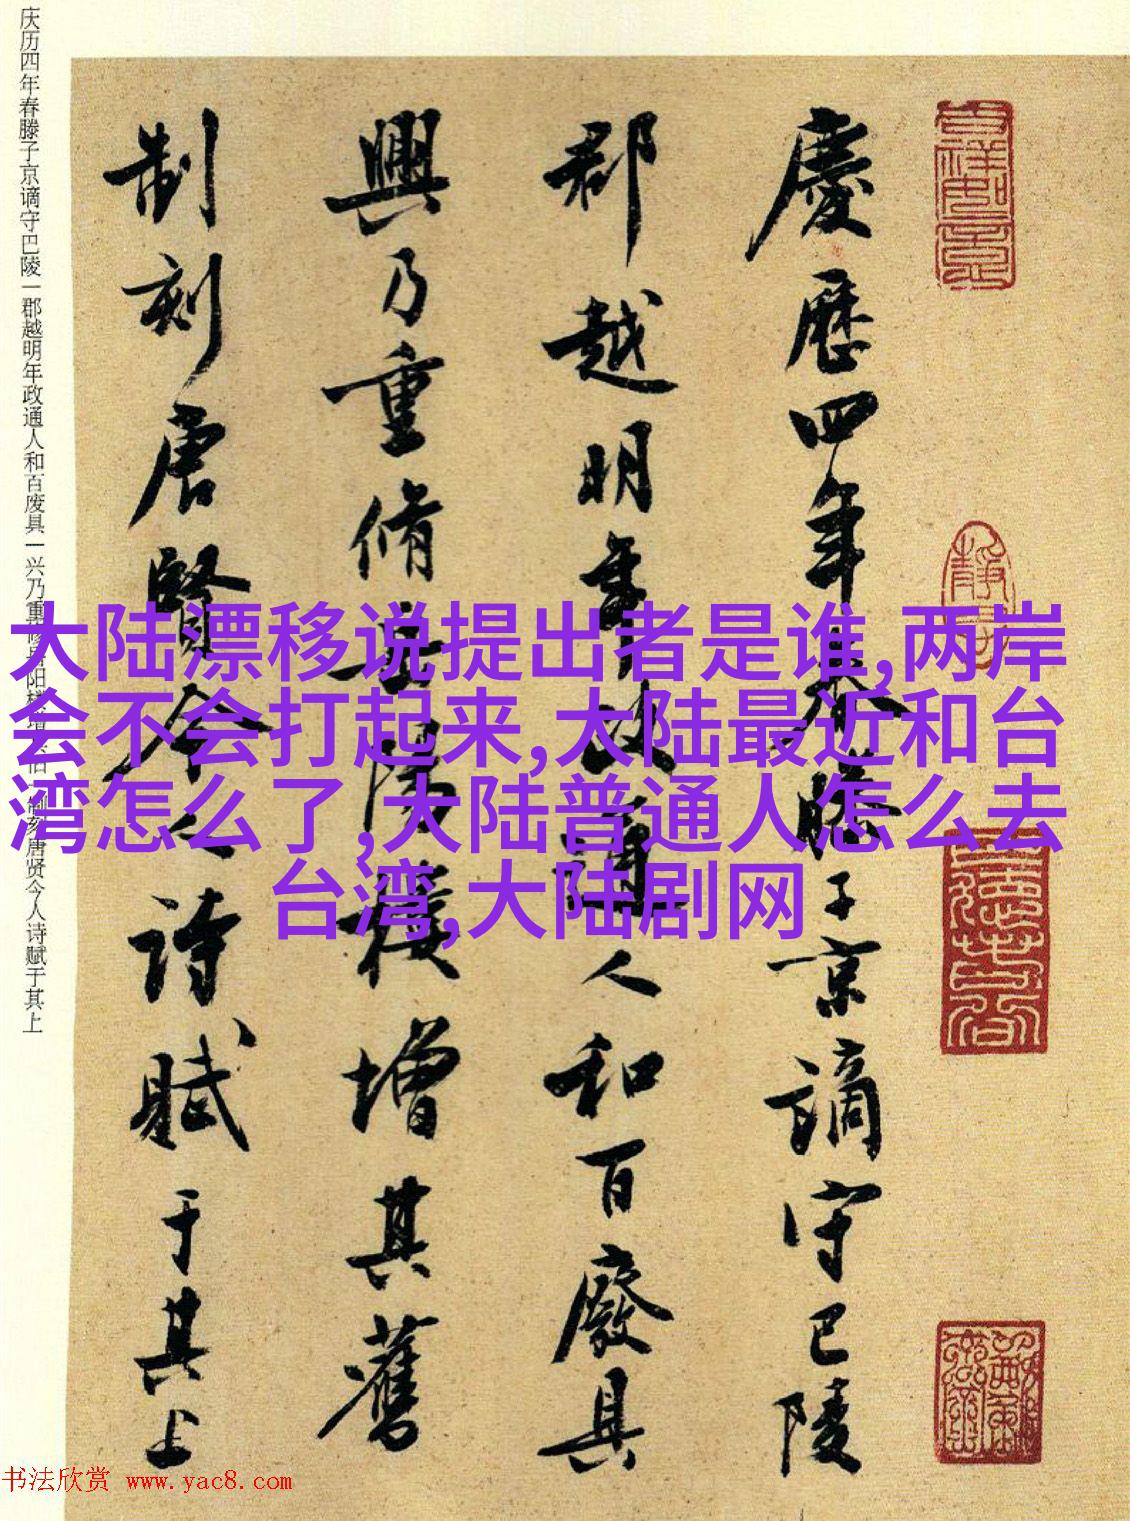 慶歷四年春滕子京謫守巴陵
郡越明年政通人和百廢具
興乃重脩岳陽樓增其舊
制刻唐賢今人詩賦于其上
庆历四年春滕子京谪守巴陵一郡越明年政通人和百废具一兴乃重修岳阳楼增其旧一制刻唐贤今人诗赋于其上
大陆漂移说提出者是谁,两岸
会不会打起来,大陆最近和台
湾怎么了,大陆普通人怎么去
台湾,大陆剧网
书法欣赏 www.yac8.com